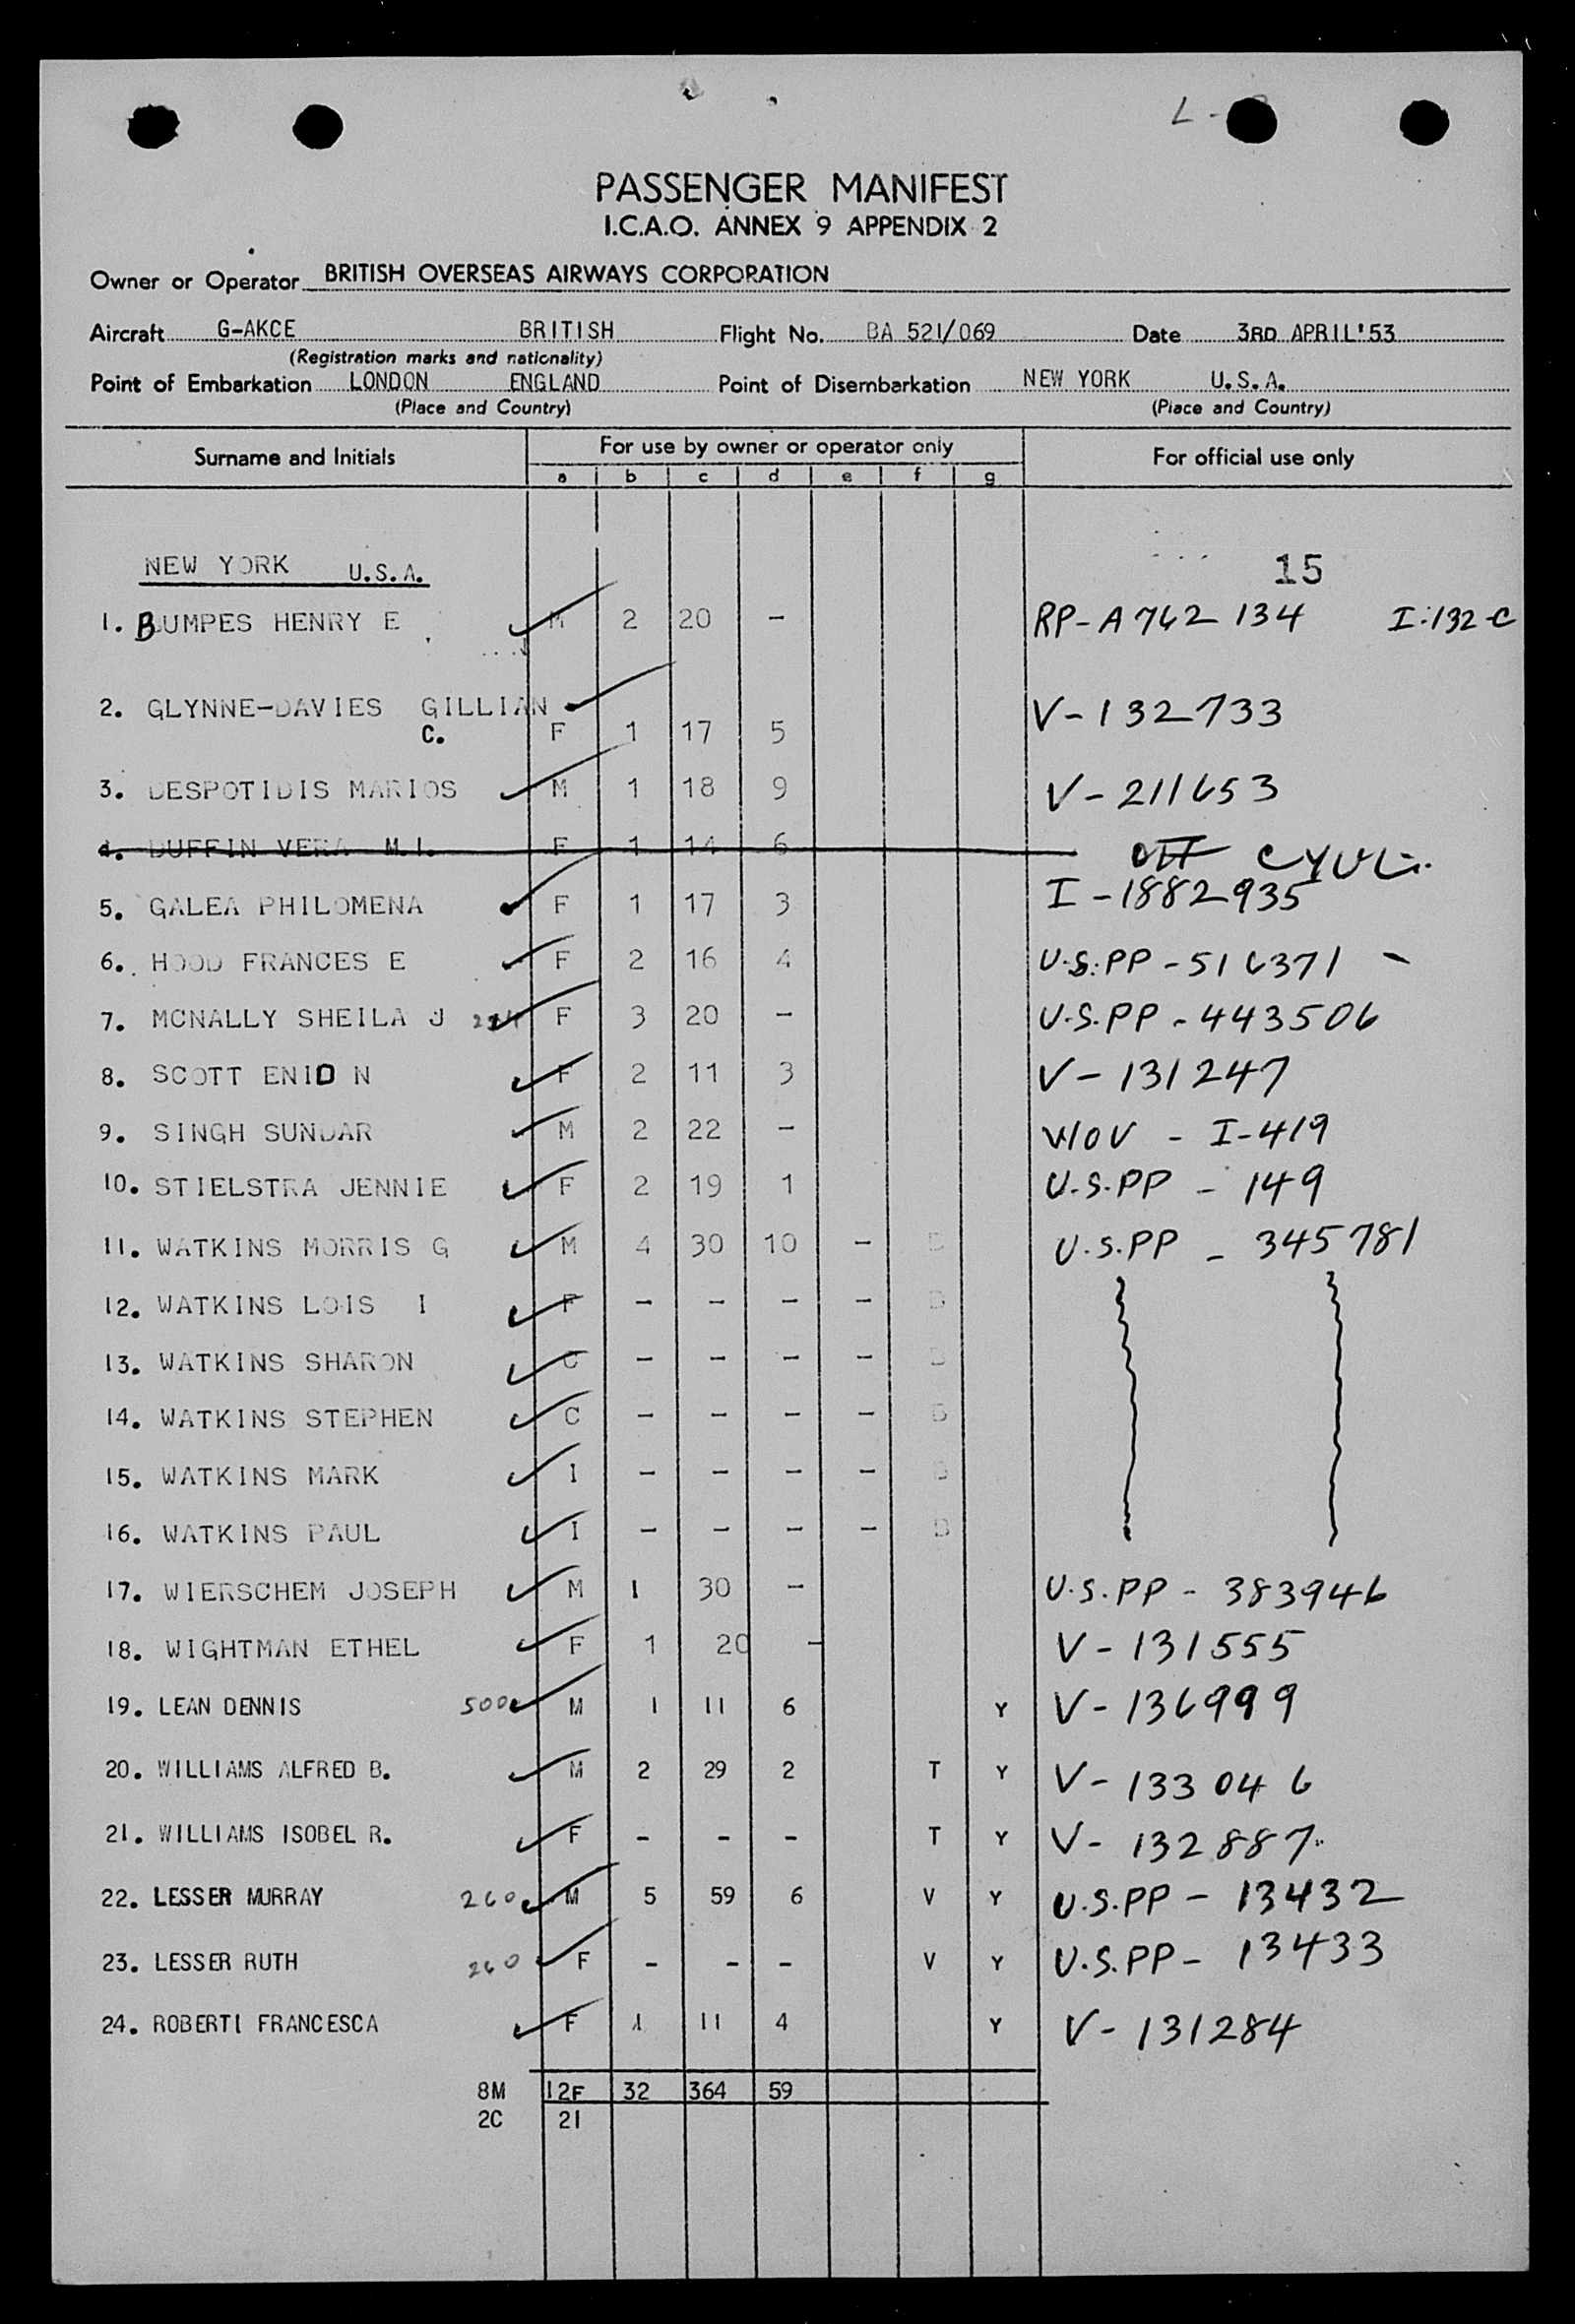 PASSENGER MANIFEST
I.C.A.O. ANNEX 9 APPENDIX 2
Owner or Operator BRITISH OVERSEAS AIRWAYS CORPORATION
Aircraft G-AKCE BRITISH Flight No. BA 521/069 Date 3RD APRIL'53
(Registration marks and nationality)
Point of Embarkation LONDON ENGLAND Point of Disembarkation NEW YORK U.S.A.
(Place and Country) (Place and Country)
Surname and Initials For use by owner or operator only For official use only
a b c d e f g
NEW YORK U.S.A. 15
1. BUMPES HENRY E M 2 20 - RP-A762134 I-132-C
2. GLYNNE-DAVIES GILLIAN V-132733
C. F 1 17 5
3. DESPOTIDIS MARIOS M 1 18 9 V-211653
4. DUFFIN VERA M.I. F 1 14 6 OFF CYUL
5. GALEA PHILOMENA F 1 17 3 I-1882935
6. HOOD FRANCES E F 2 16 4 U.S.PP-516371 -
7. MCNALLY SHEILA J F 3 20 - U.S.PP-443506
8. SCOTT ENID N F 2 11 3 V-131247
9. SINGH SUNDAR M 2 22 - WOV - I-419
10. STIELSTRA JENNIE F 2 19 1 U.S.PP - 149
11. WATKINS MORRIS G M 4 30 10 - B U.S.PP - 345781
12. WATKINS LOIS I F - - - - B
13. WATKINS SHARON C - - - - B
14. WATKINS STEPHEN C - - - - B
15. WATKINS MARK I - - - - B
16. WATKINS PAUL I - - - - B
17. WIERSCHEM JOSEPH M 1 30 - U.S.PP - 383946
18. WIGHTMAN ETHEL F 1 20 - V-131555
19. LEAN DENNIS 500 M 1 11 6 Y V-136999
20. WILLIAMS ALFRED B. M 2 29 2 T Y V-133046
21. WILLIAMS ISOBEL R. F - - - T Y V-132887
22. LESSER MURRAY 260 M 5 59 6 V Y U.S.PP - 13432
23. LESSER RUTH 260 F - - - V Y U.S.PP - 13433
24. ROBERTI FRANCESCA F 1 11 4 Y V-131284
8M 12F 32 364 59
2C 2I